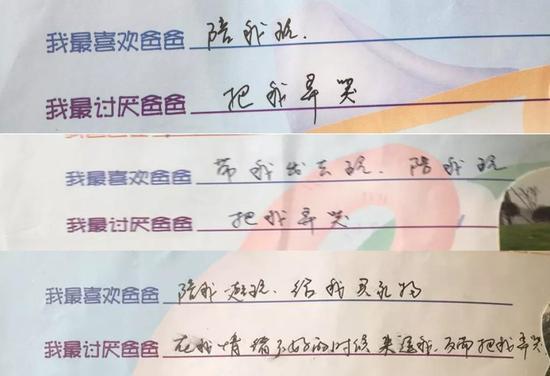 我最喜欢爸爸 陪我玩.
我最讨厌爸爸 把我弄哭
我最喜欢爸爸 带我出去玩、陪我玩
我最讨厌爸爸 把我弄哭
我最喜欢爸爸 陪我游玩、给我买礼物
我最讨厌爸爸 在我情绪不好的时候来逗我,反而把我弄哭